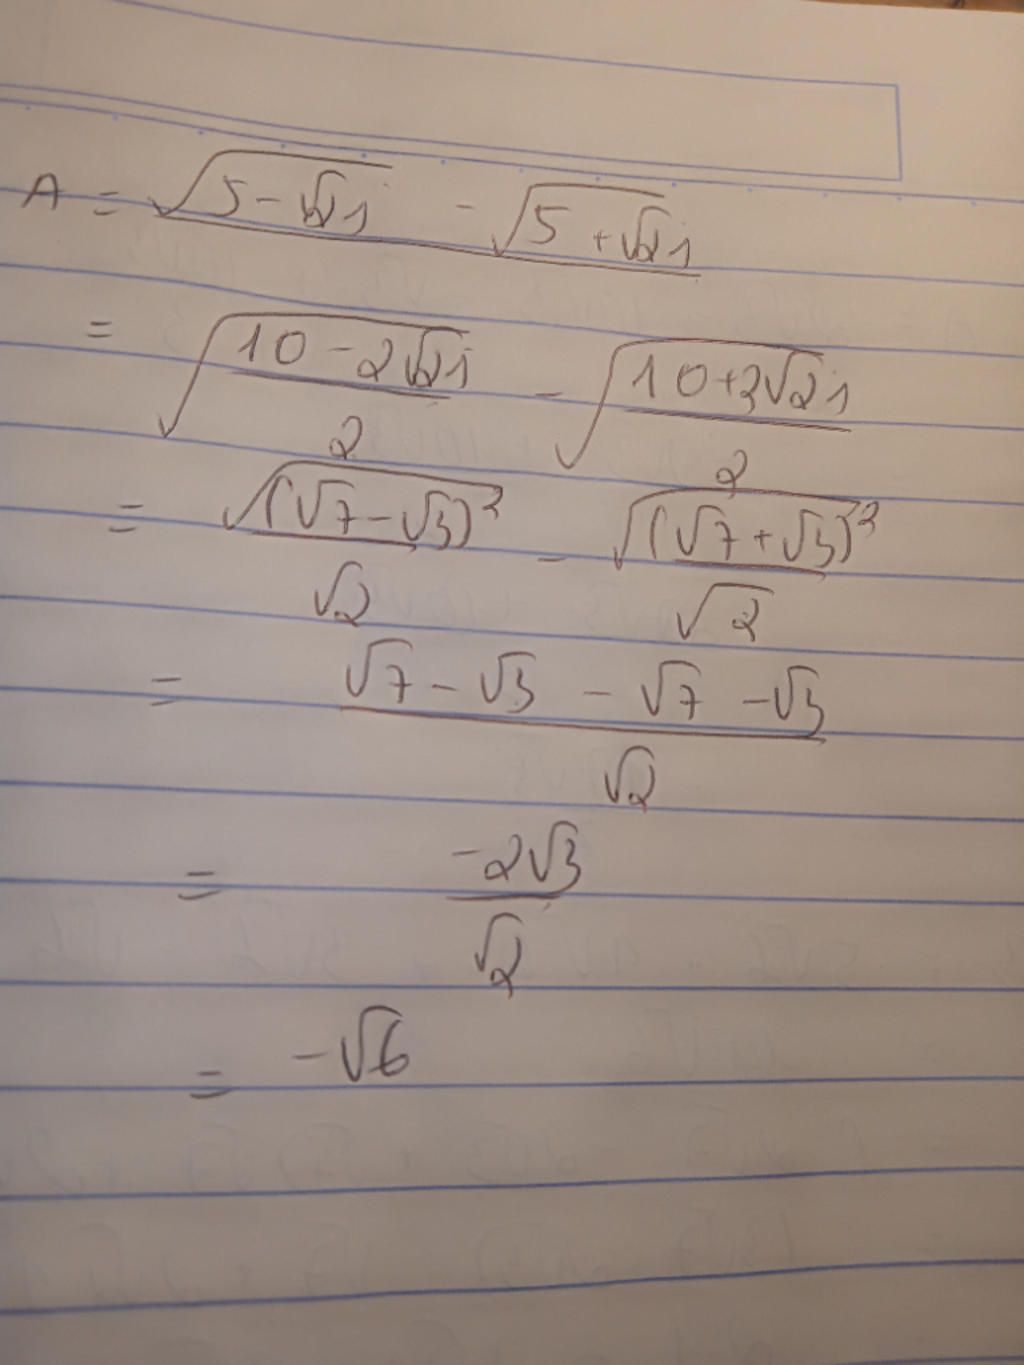 A = √(5-√21) - √(5+√21)
= √((10-2√21)/2) - √((10+2√21)/2)
= √((√7-√3)²)/√2 - √((√7+√3)²)/√2
= (√7-√3-√7-√3)/√2
= -2√3/√2
= -√6